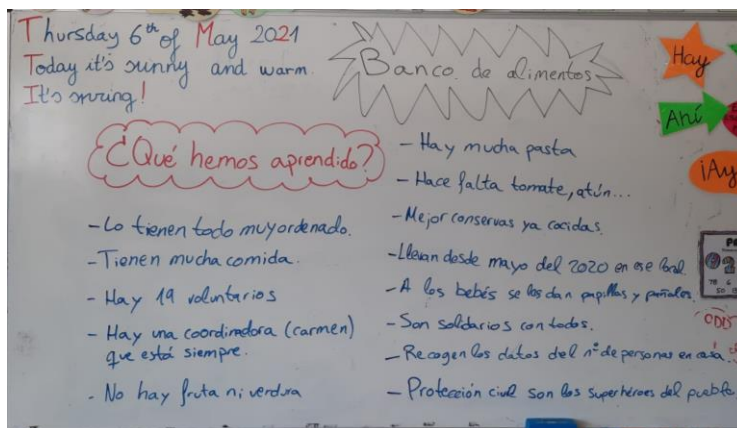 Thursday 6th of May 2021
Today it's sunny and warm.
It's spring!
Banco de alimentos
¿Qué hemos aprendido?
- Lo tienen todo muy ordenado.
- Tienen mucha comida.
- Hay 19 voluntarios
- Hay una coordinadora (carmen)
que está siempre.
- No hay fruta ni verdura
- Hay mucha pasta
- Hace falta tomate, atún...
- Mejor conservas ya cocidas.
- Llevan desde mayo del 2020 en ese local
- A los bebés se les dan papillas y pañales.
- Son solidarios con todos.
- Recogen los datos del nº de personas en casa.
- Protección civil son los superhéroes del pueblo.
Hay
Ahí
¡Ay